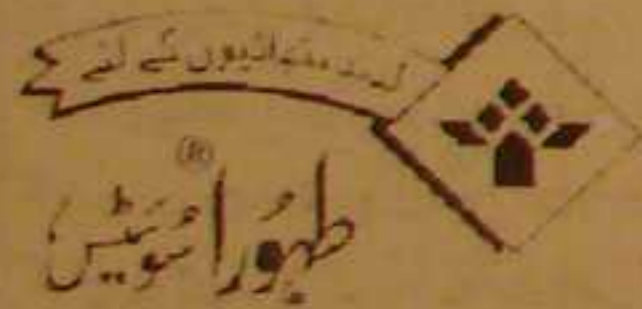 لذیذ مٹھائیوں کے لئے
طہُورا سُوئیٹس ®